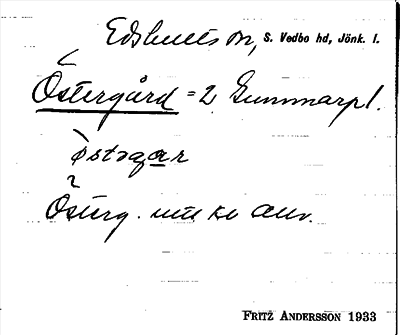 Edshults sn, S. Vedbo hd, Jönk. l.
Östergård = 2 Gummarp 1.
östəgar
Österg.
FRITZ ANDERSSON 1933